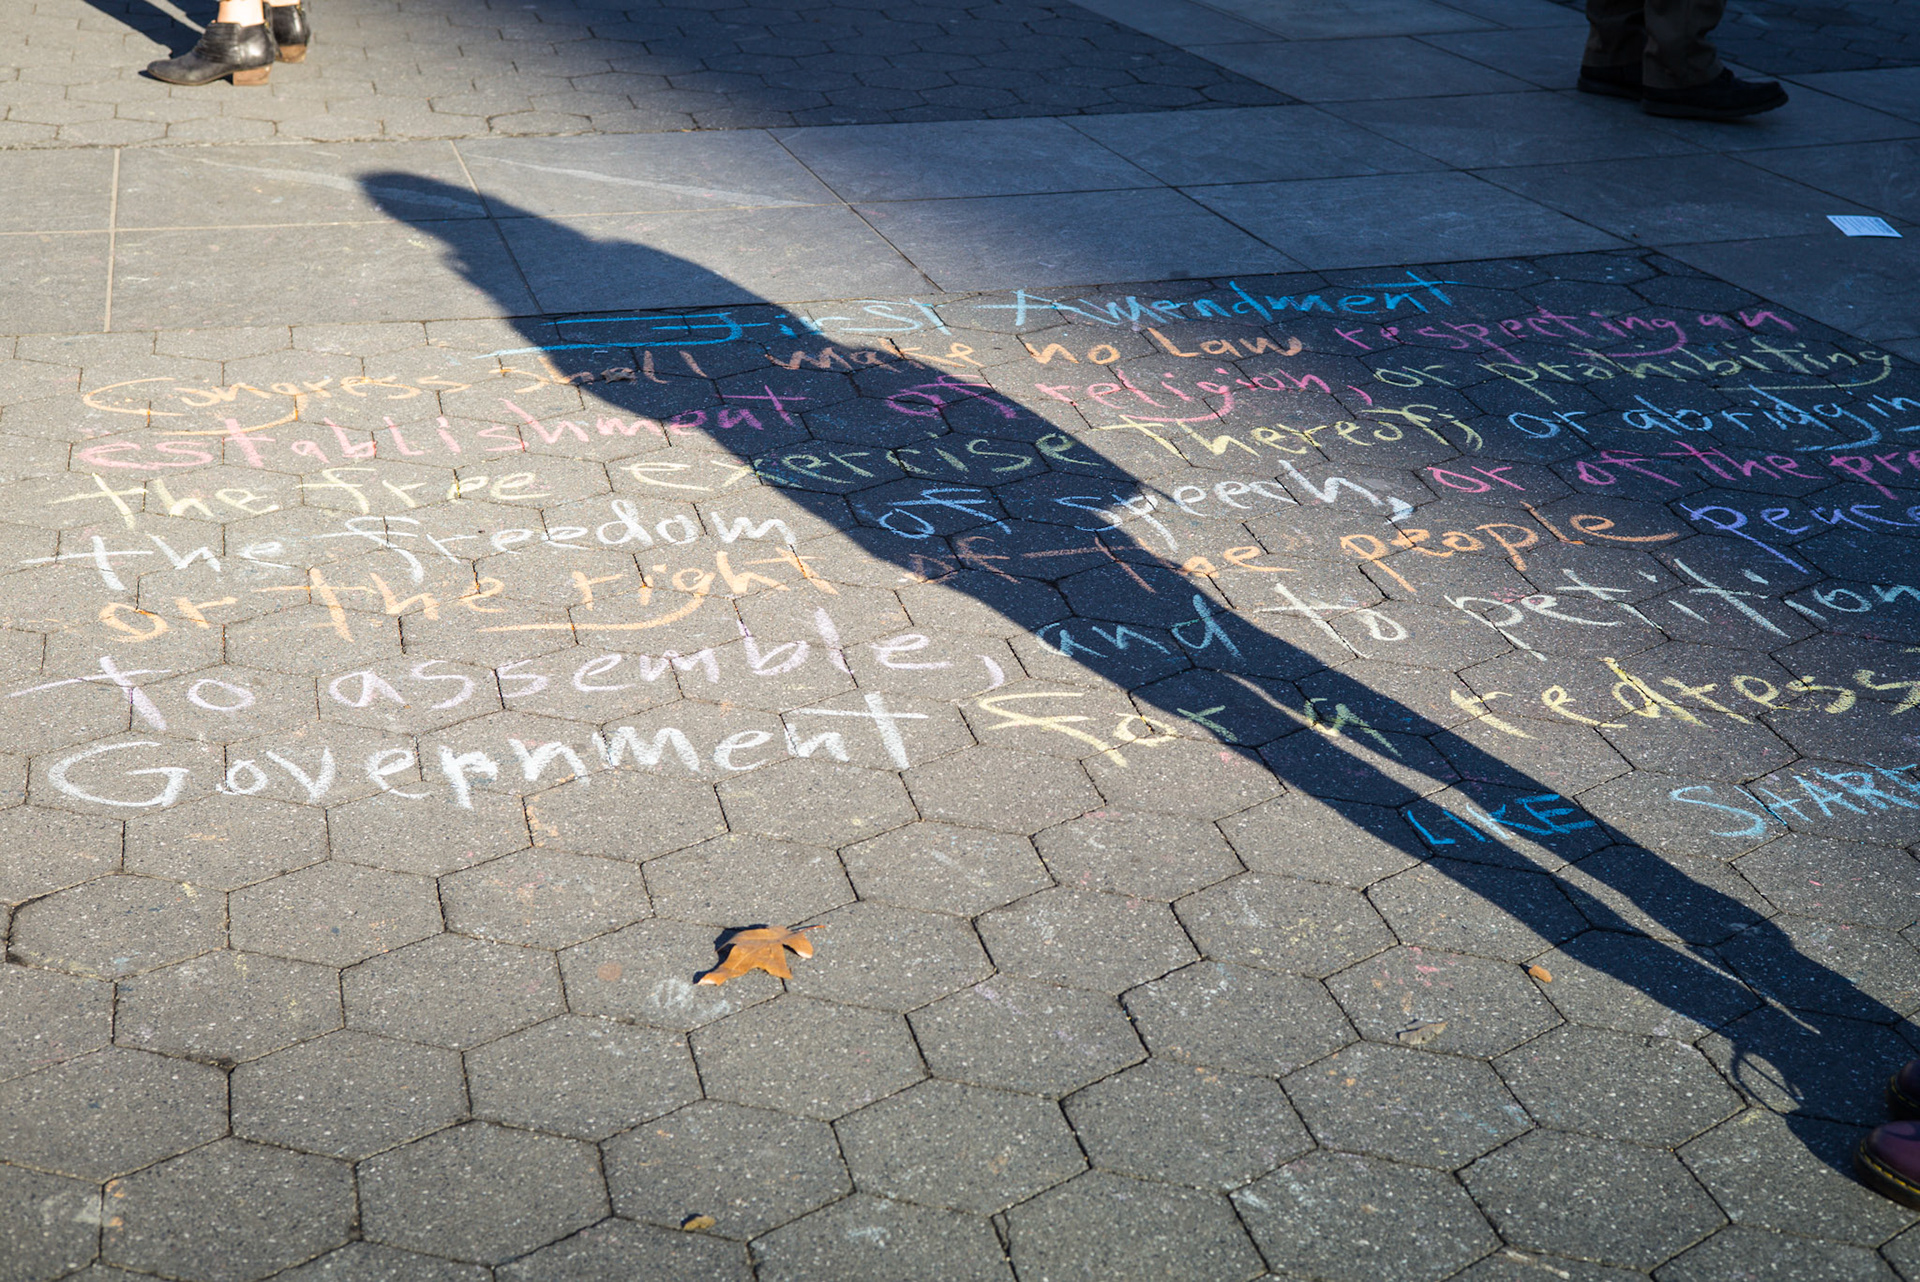 First Amendment
Congress shall make no Law respecting an
establishment of religion, or prohibiting
the free exercise thereof; or abridgin
the freedom of speech, or of the pre
or the right of the people peace
to assemble, and to petition
Government for a redress
LIKE SHARE